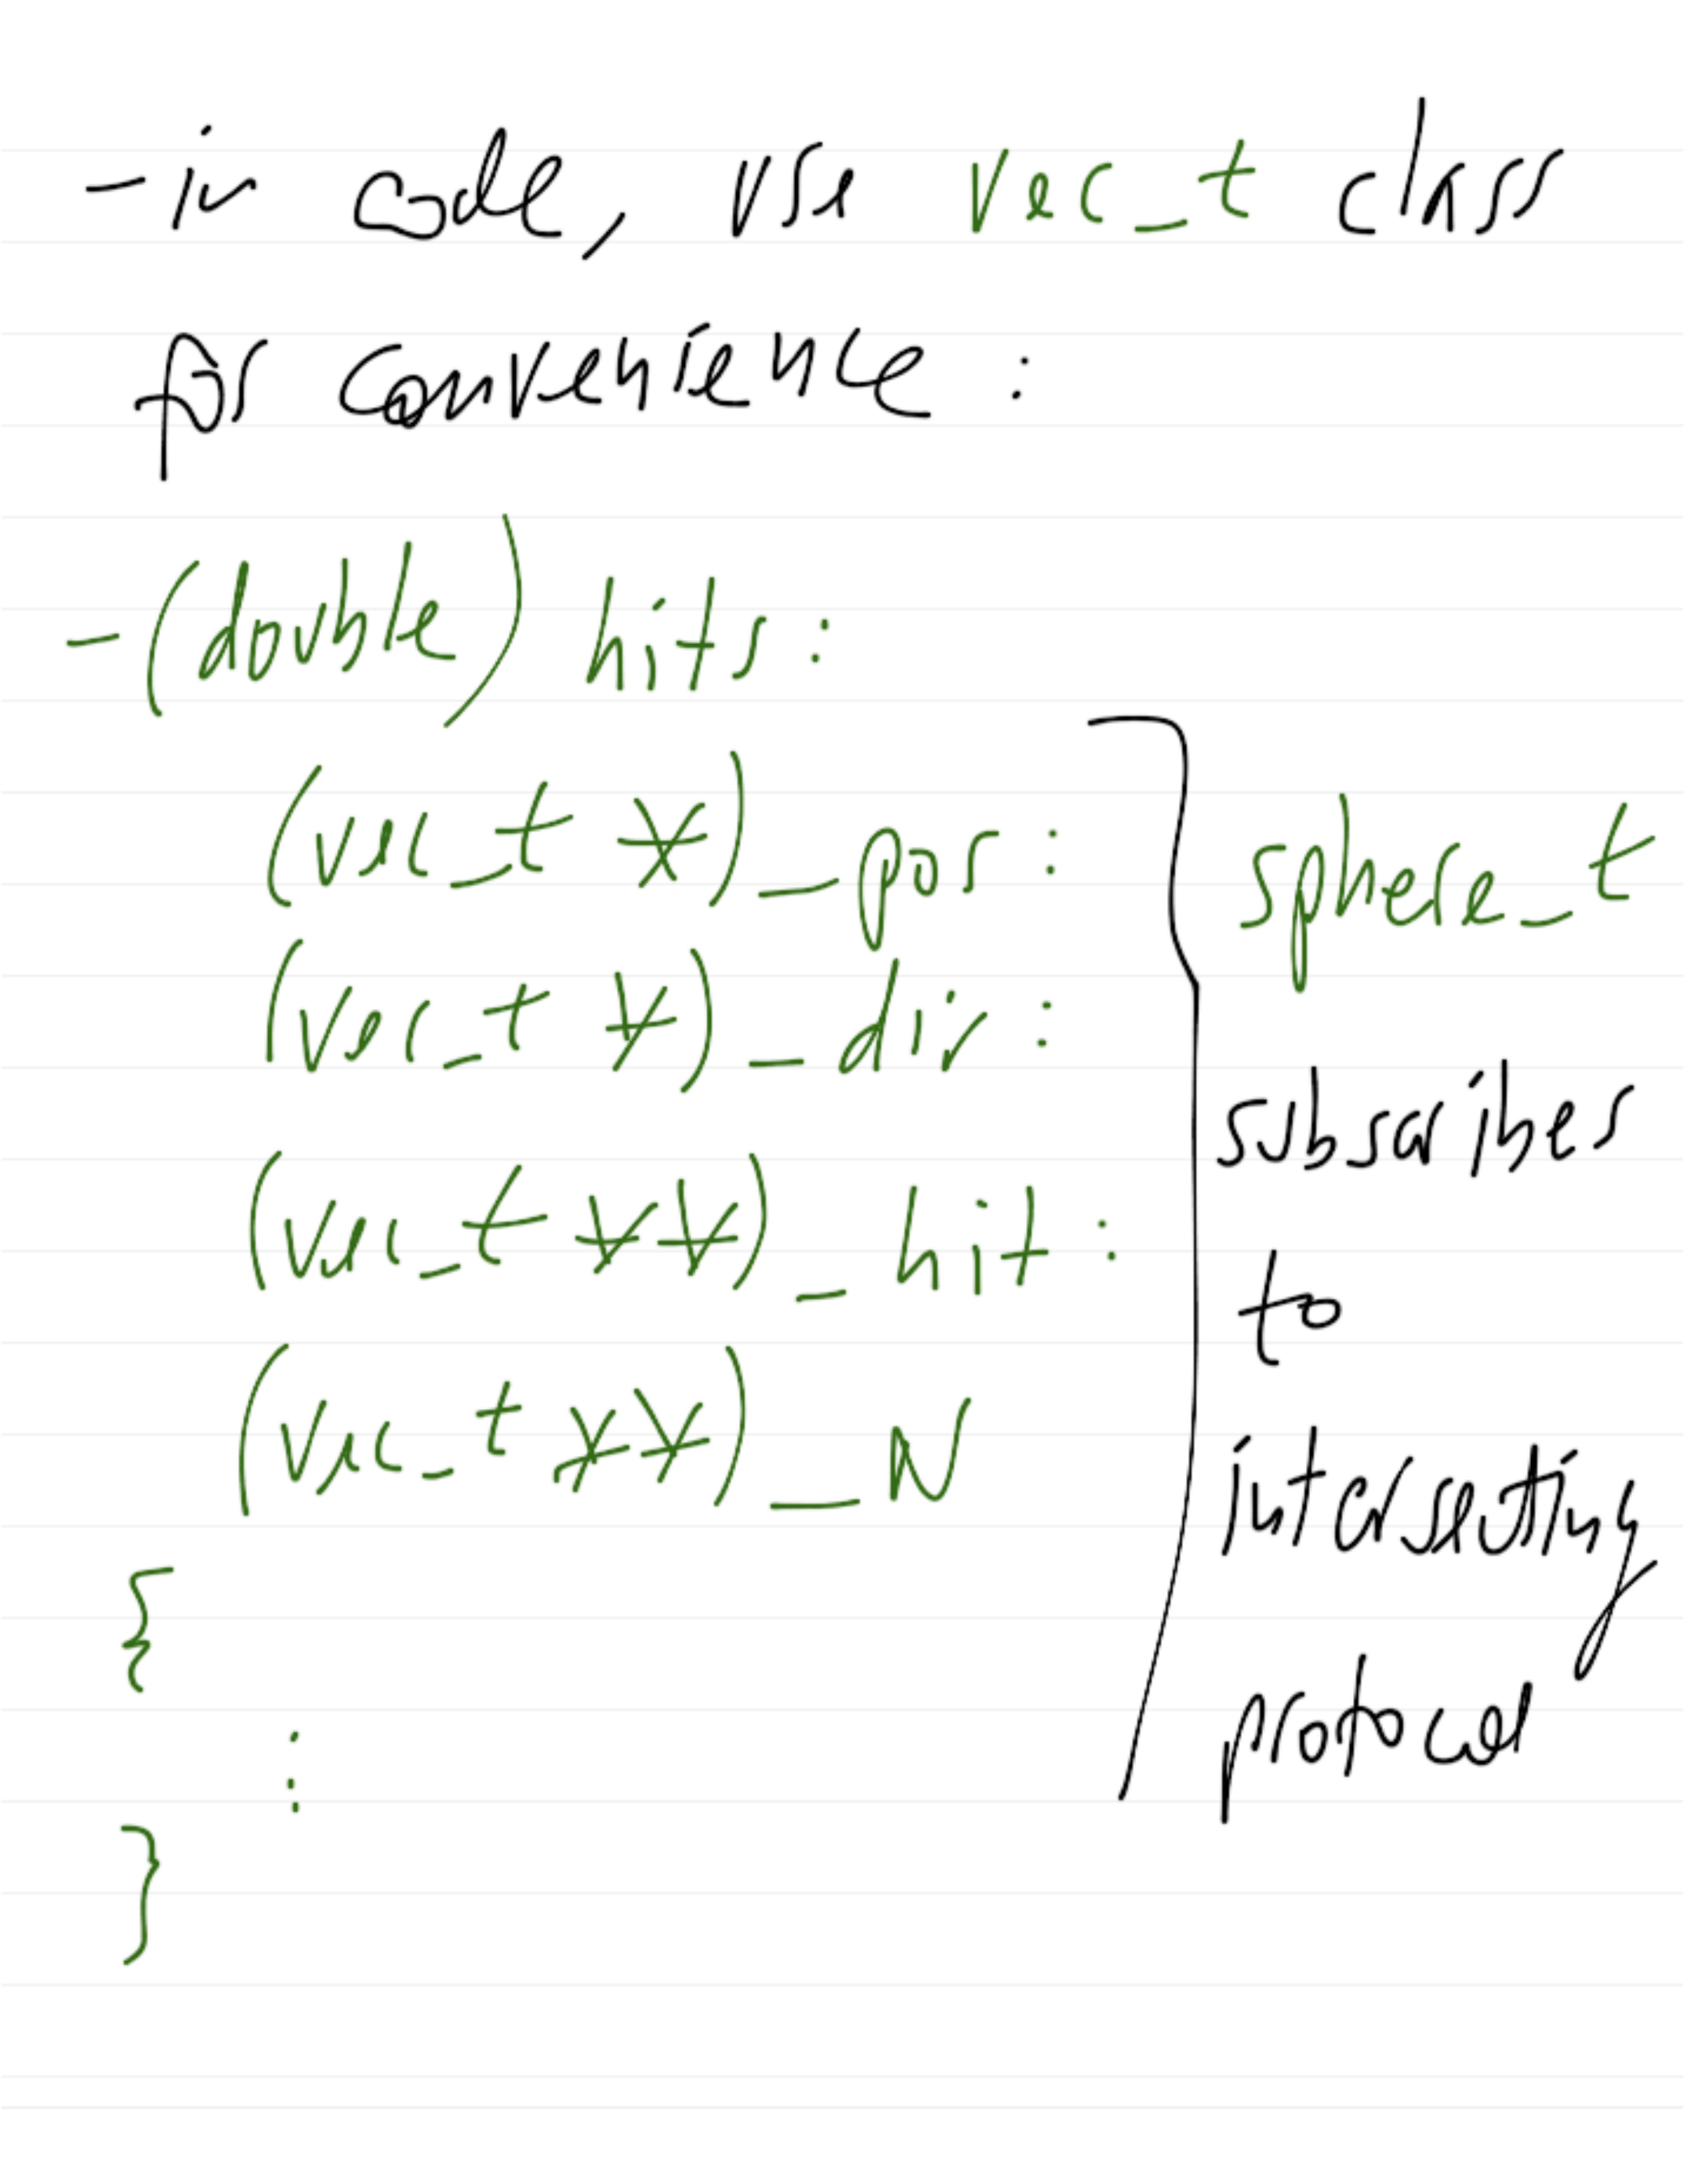 - in code, use vec_t class
for convenience :
- (double) hits :
(vec_t *)_pos :
(vec_t *)_dir :
(vec_t **)_hit :
(vec_t **)_N
{
⋮
}
sphere_t
subscribes
to
intersecting
protocol